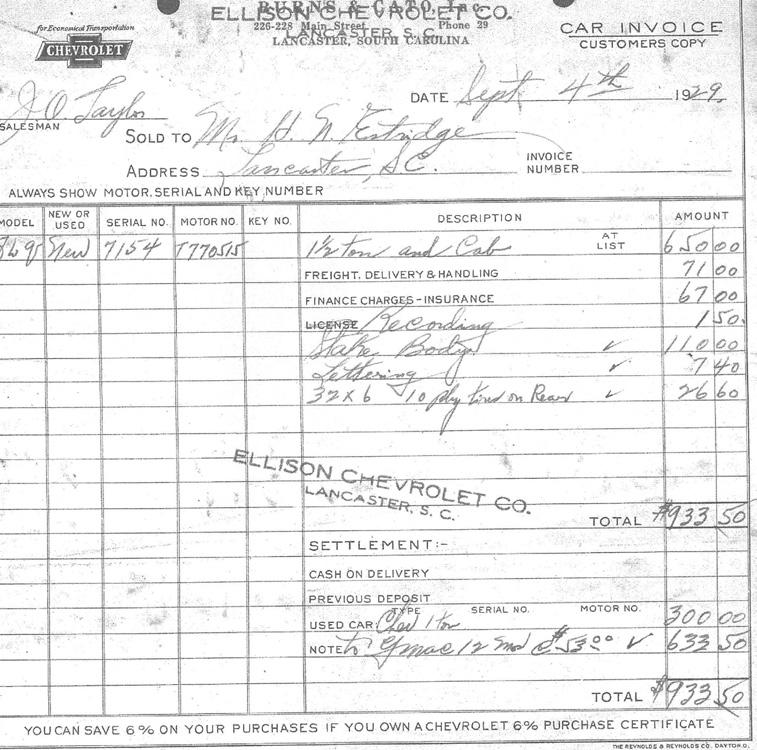 BURNS & CATO, Inc.
ELLISON CHEVROLET CO.
226-228 Main Street Phone 29
LANCASTER, S. C.
LANCASTER, SOUTH CAROLINA
for Economical Transportation
CHEVROLET
CAR INVOICE
CUSTOMERS COPY
DATE Sept 4th 1929.
J. O. Taylor
SALESMAN
SOLD TO Mr. H. N. Estridge
ADDRESS Lancaster, S.C. INVOICE NUMBER
ALWAYS SHOW MOTOR, SERIAL AND KEY NUMBER
MODEL NEW OR USED SERIAL NO. MOTOR NO. KEY NO. DESCRIPTION AMOUNT
New 7154 T770515 1½ ton and Cab AT LIST 650 00
FREIGHT, DELIVERY & HANDLING 71 00
FINANCE CHARGES-INSURANCE 67 00
LICENSE Recording 1 50.
Stake Body ✓ 110 00
Lettering ✓ 7 40
32 x 6 10 ply tires on Rear ✓ 26 60
ELLISON CHEVROLET CO.
LANCASTER, S. C.
TOTAL $933 50
SETTLEMENT:-
CASH ON DELIVERY
PREVIOUS DEPOSIT
TYPE SERIAL NO. MOTOR NO.
USED CAR: Chev 1 ton 300 00
NOTE to Gmac 12 Mos @ $53 00 ✓ 633 50
TOTAL $933 50
YOU CAN SAVE 6% ON YOUR PURCHASES IF YOU OWN A CHEVROLET 6% PURCHASE CERTIFICATE
THE REYNOLDS & REYNOLDS CO. DAYTON, O.